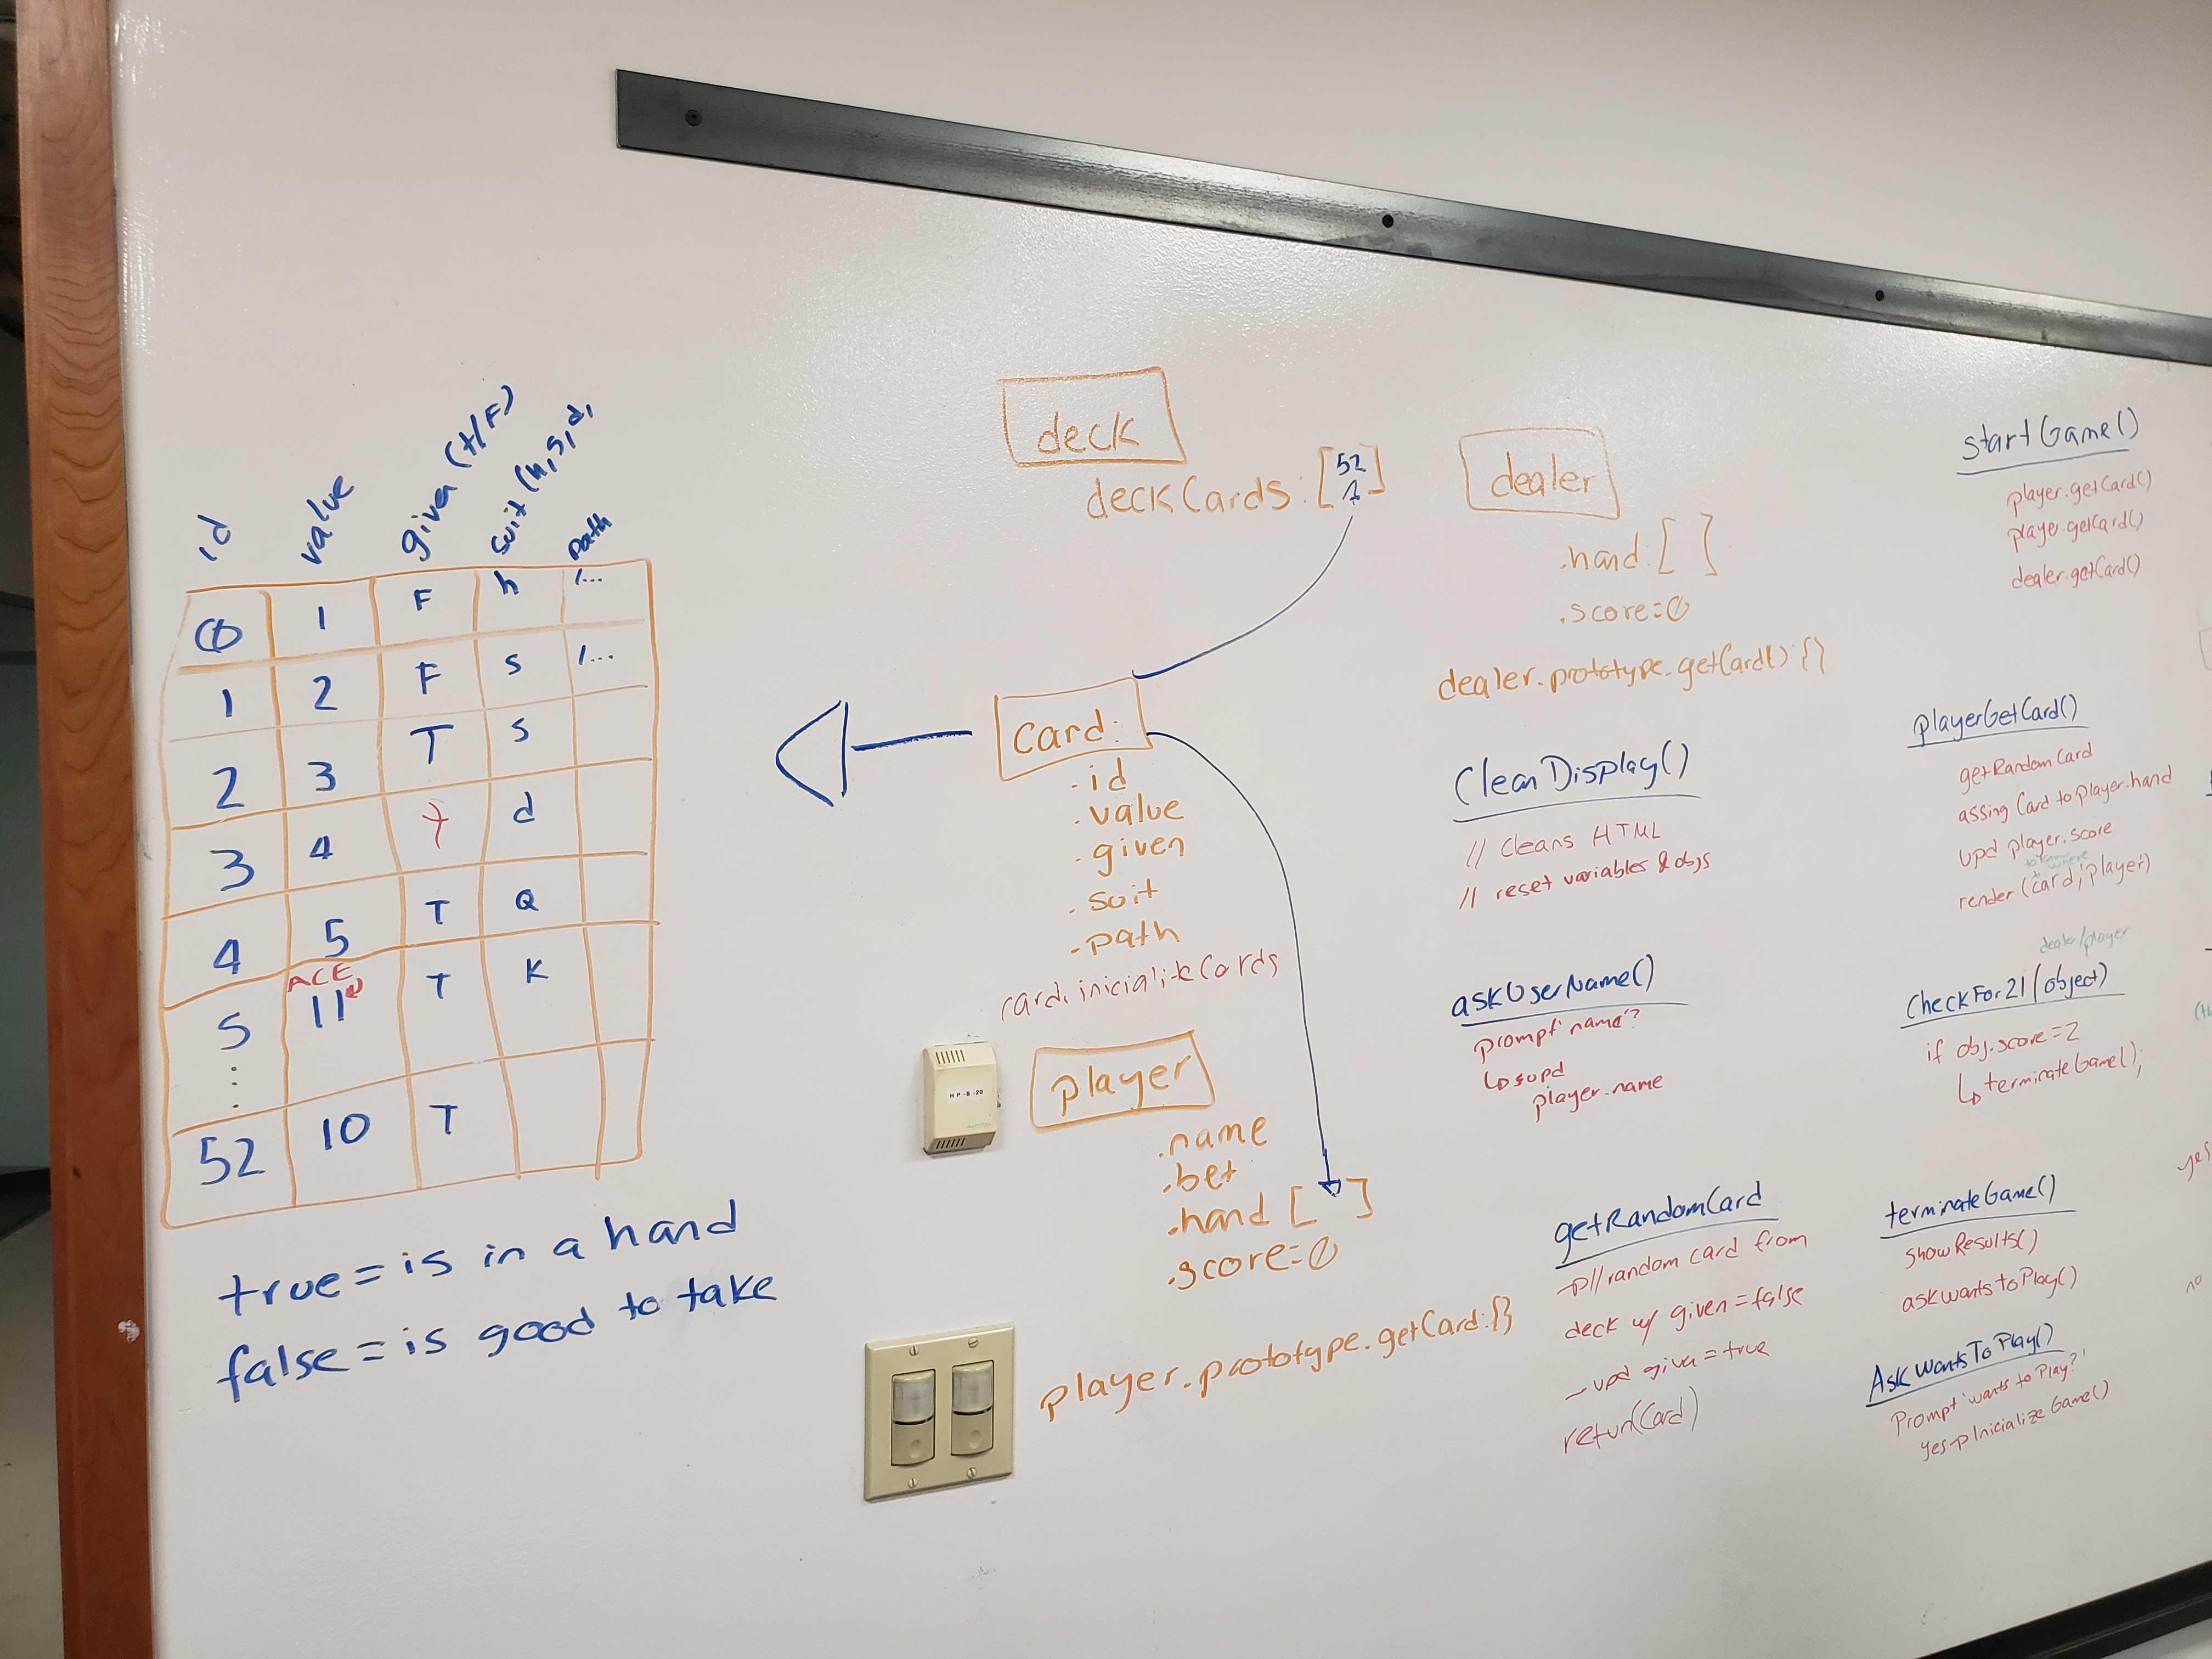 id value given (t/F) suit (h,s,d, path
0 1 F h /...
1 2 F s /...
2 3 T s
3 4 T d
4 5 T Q
5 ACE 11 T K
52 10 T
true = is in a hand
false = is good to take
deck
deckCards: [52]
card:
.id
.value
.given
.suit
.path
card.inicialiteCards
HP-B-20
player
.name
.bet
.hand [ ]
.score=0
player.prototype.getCard:{}
dealer
.hand [ ]
.score=0
dealer.prototype.getCard():{}
CleanDisplay()
// Cleans HTML
// reset variables & objs
askUserName()
prompt 'name'?
player.name
getRandomCard
// random card from
deck w/ given=false
upd given=true
return(Card)
startGame()
player.getCard()
player.getCard()
dealer.getCard()
playerGetCard()
getRandomCard
assing Card to player.hand
upd player.score
render (card, player)
dealer/player
CheckFor21(object)
if obj.score=2
terminateGame();
terminateGame()
showResults()
askwantstoPlay()
AskWantsToPlay()
Prompt 'wants to Play?'
yes→InicializeGame()
yes
no